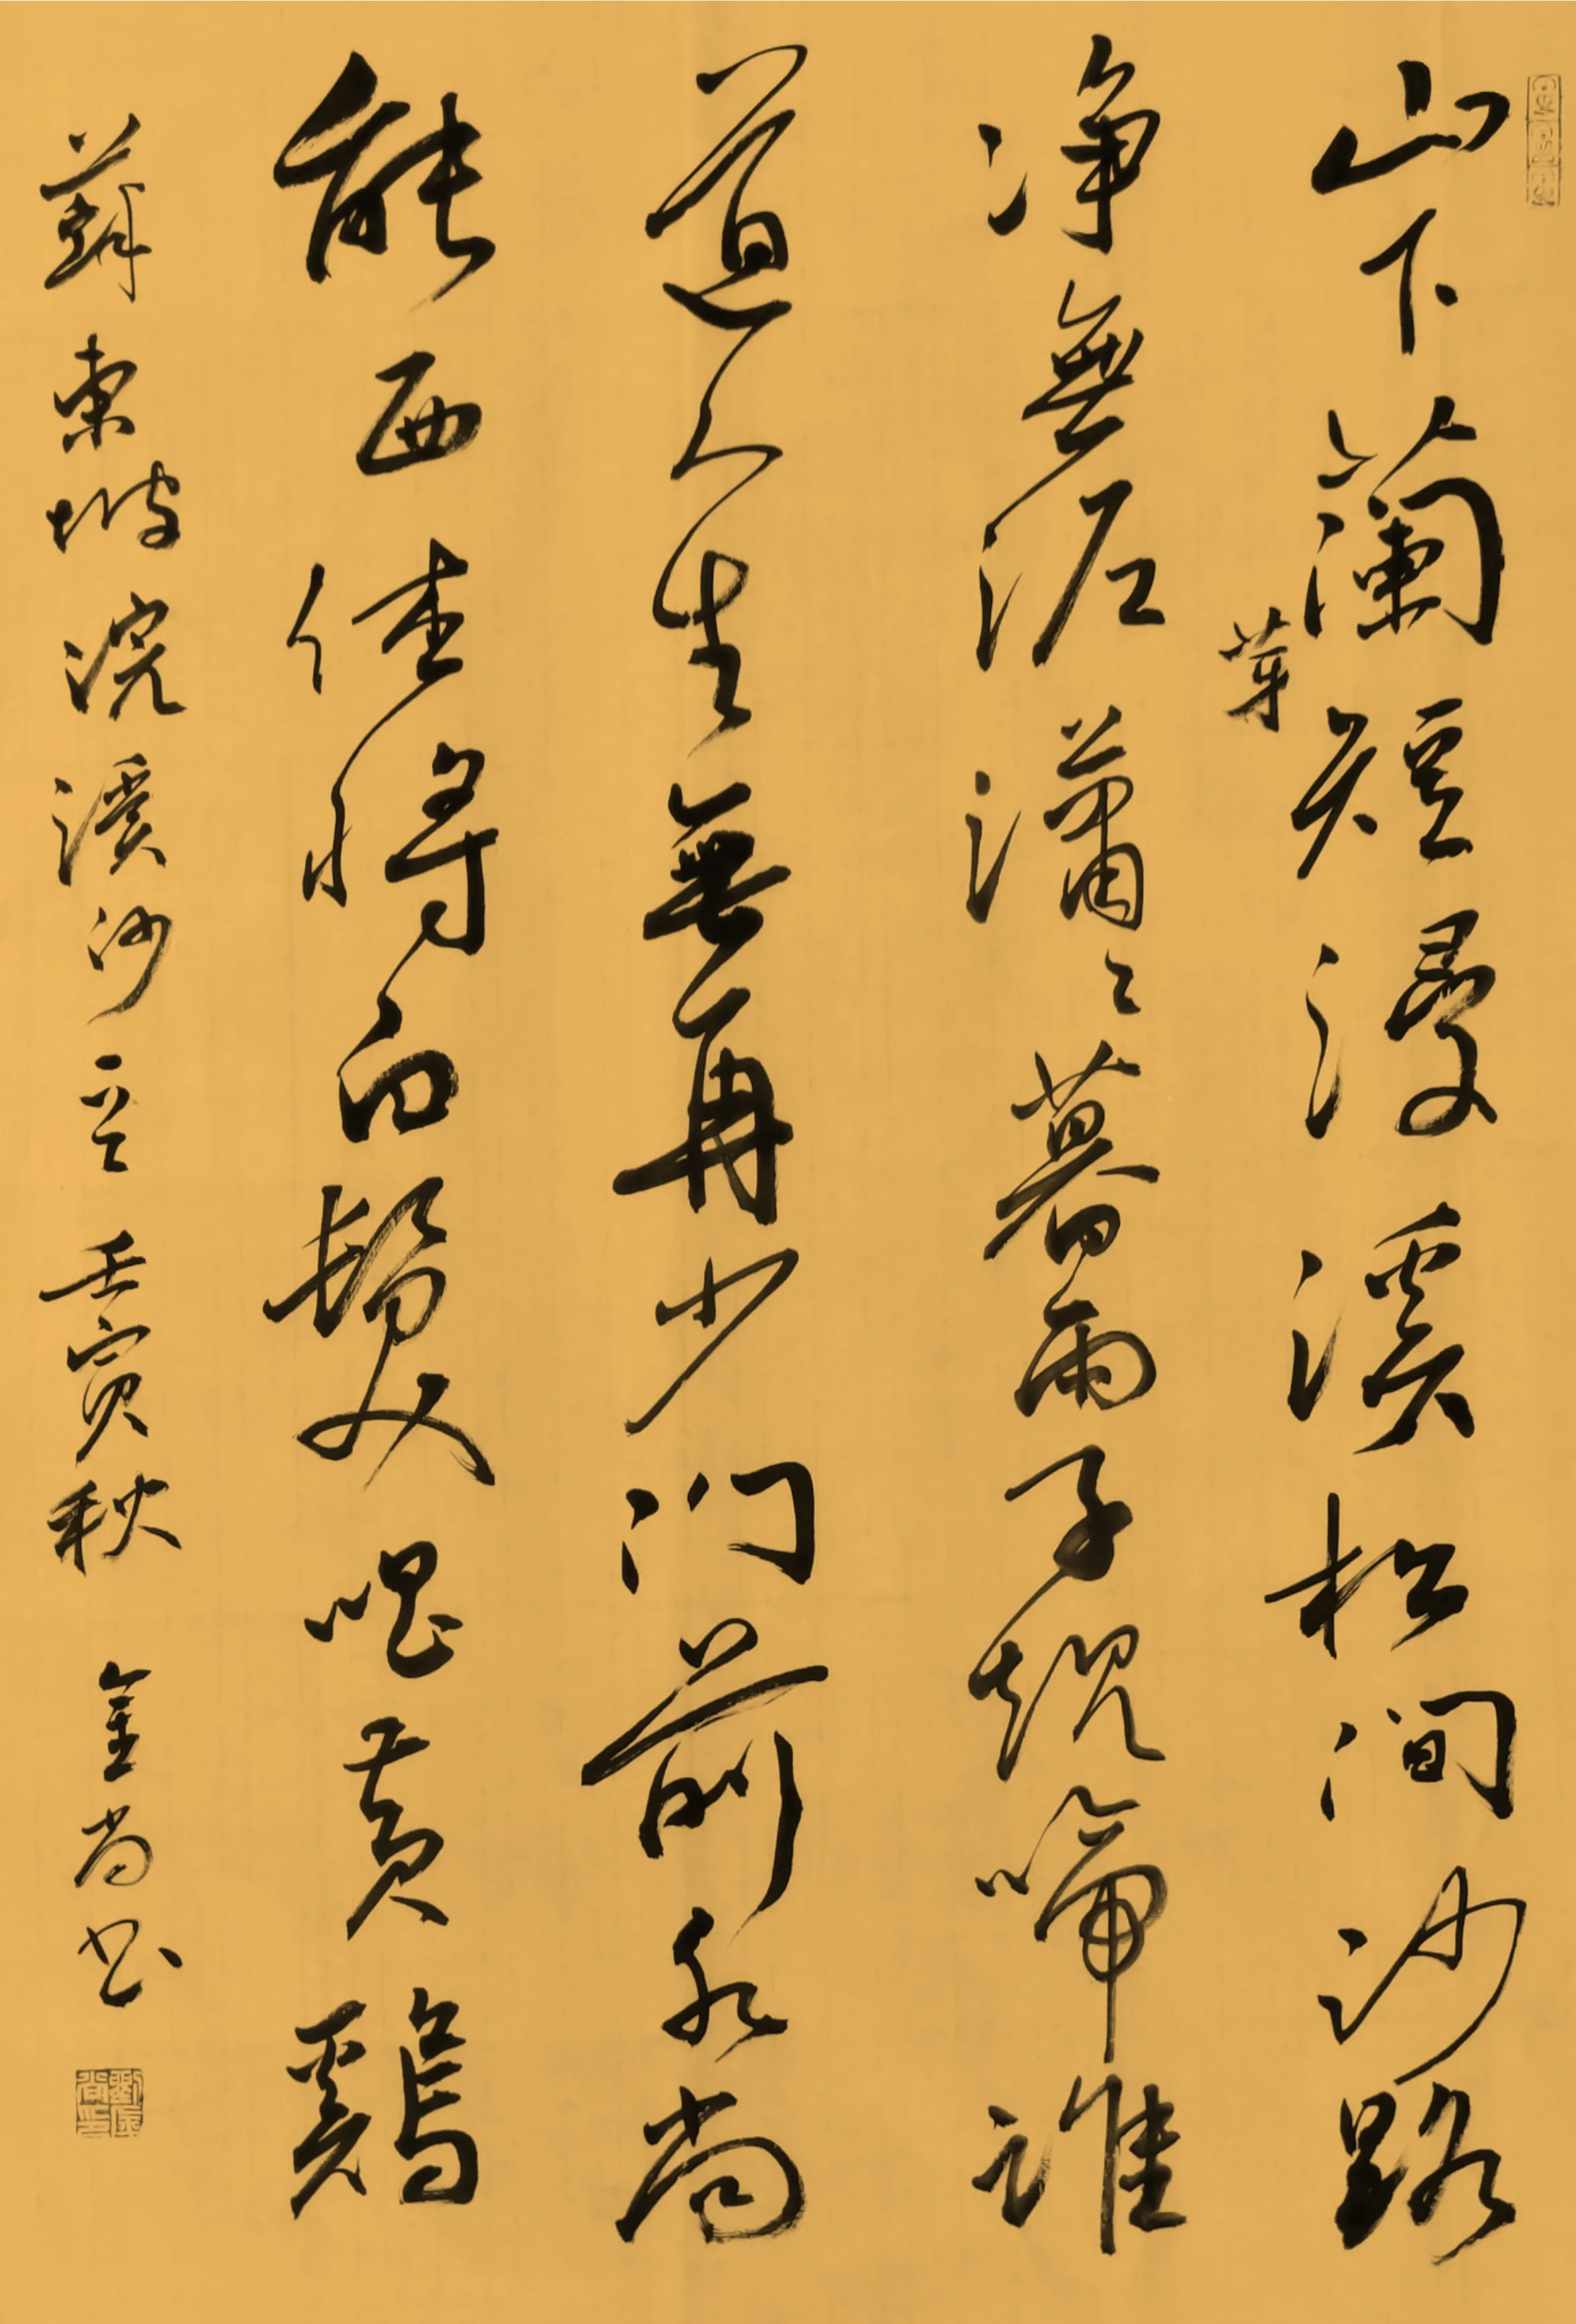 山下蘭短浸溪松間沙路
芽
净無泥瀟々暮雨子規啼誰
道人生無再少门前水尚
能西休將白髮唱黄鷄
蘇東坡浣溪沙一首 壬寅秋 金尚书